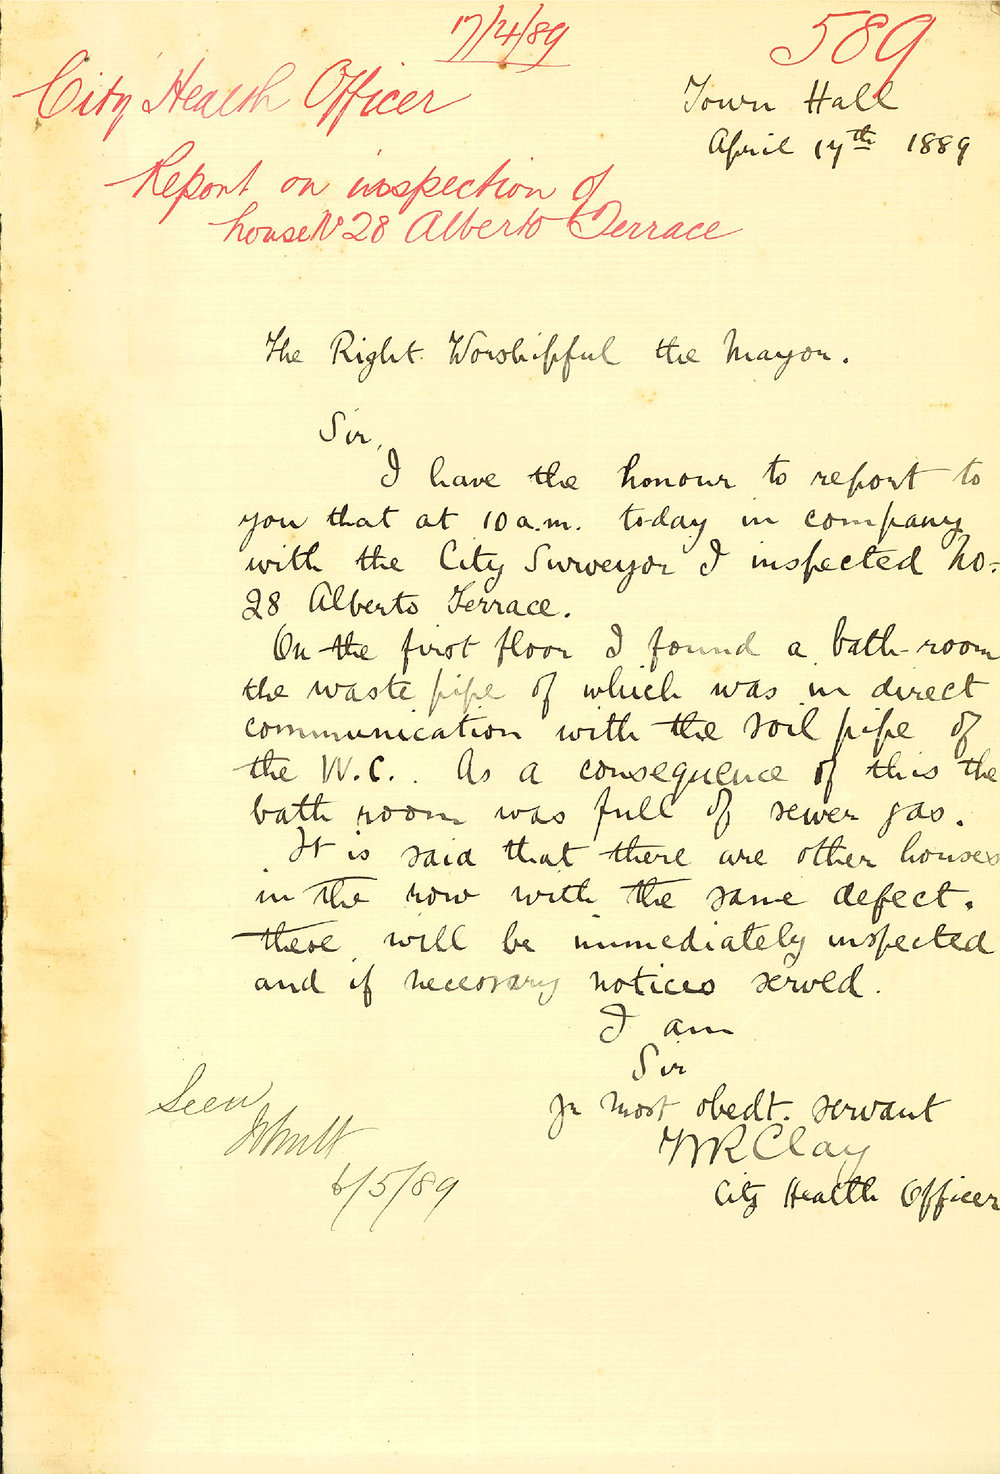 17/4/89
589
City Health Officer
Town Hall
April 17th 1889
Report on inspection of
house No 28 Alberto Terrace
The Right Worshipful the Mayor.
Sir,
I have the honour to report to
you that at 10 a.m. to-day in company
with the City Surveyor I inspected No-
28 Alberto Terrace.
On the first floor I found a bath-room
the waste pipe of which was in direct
communication with the soil pipe of
the W.C.. As a consequence of this the
bath room was full of sewer gas.
It is said that there are other houses
in the row with the same defect.
these will be immediately inspected
and if necessary notices served.
I am
Sir
yr most obedt. servant
WR Clay
City Health Officer
Seen
6/5/89